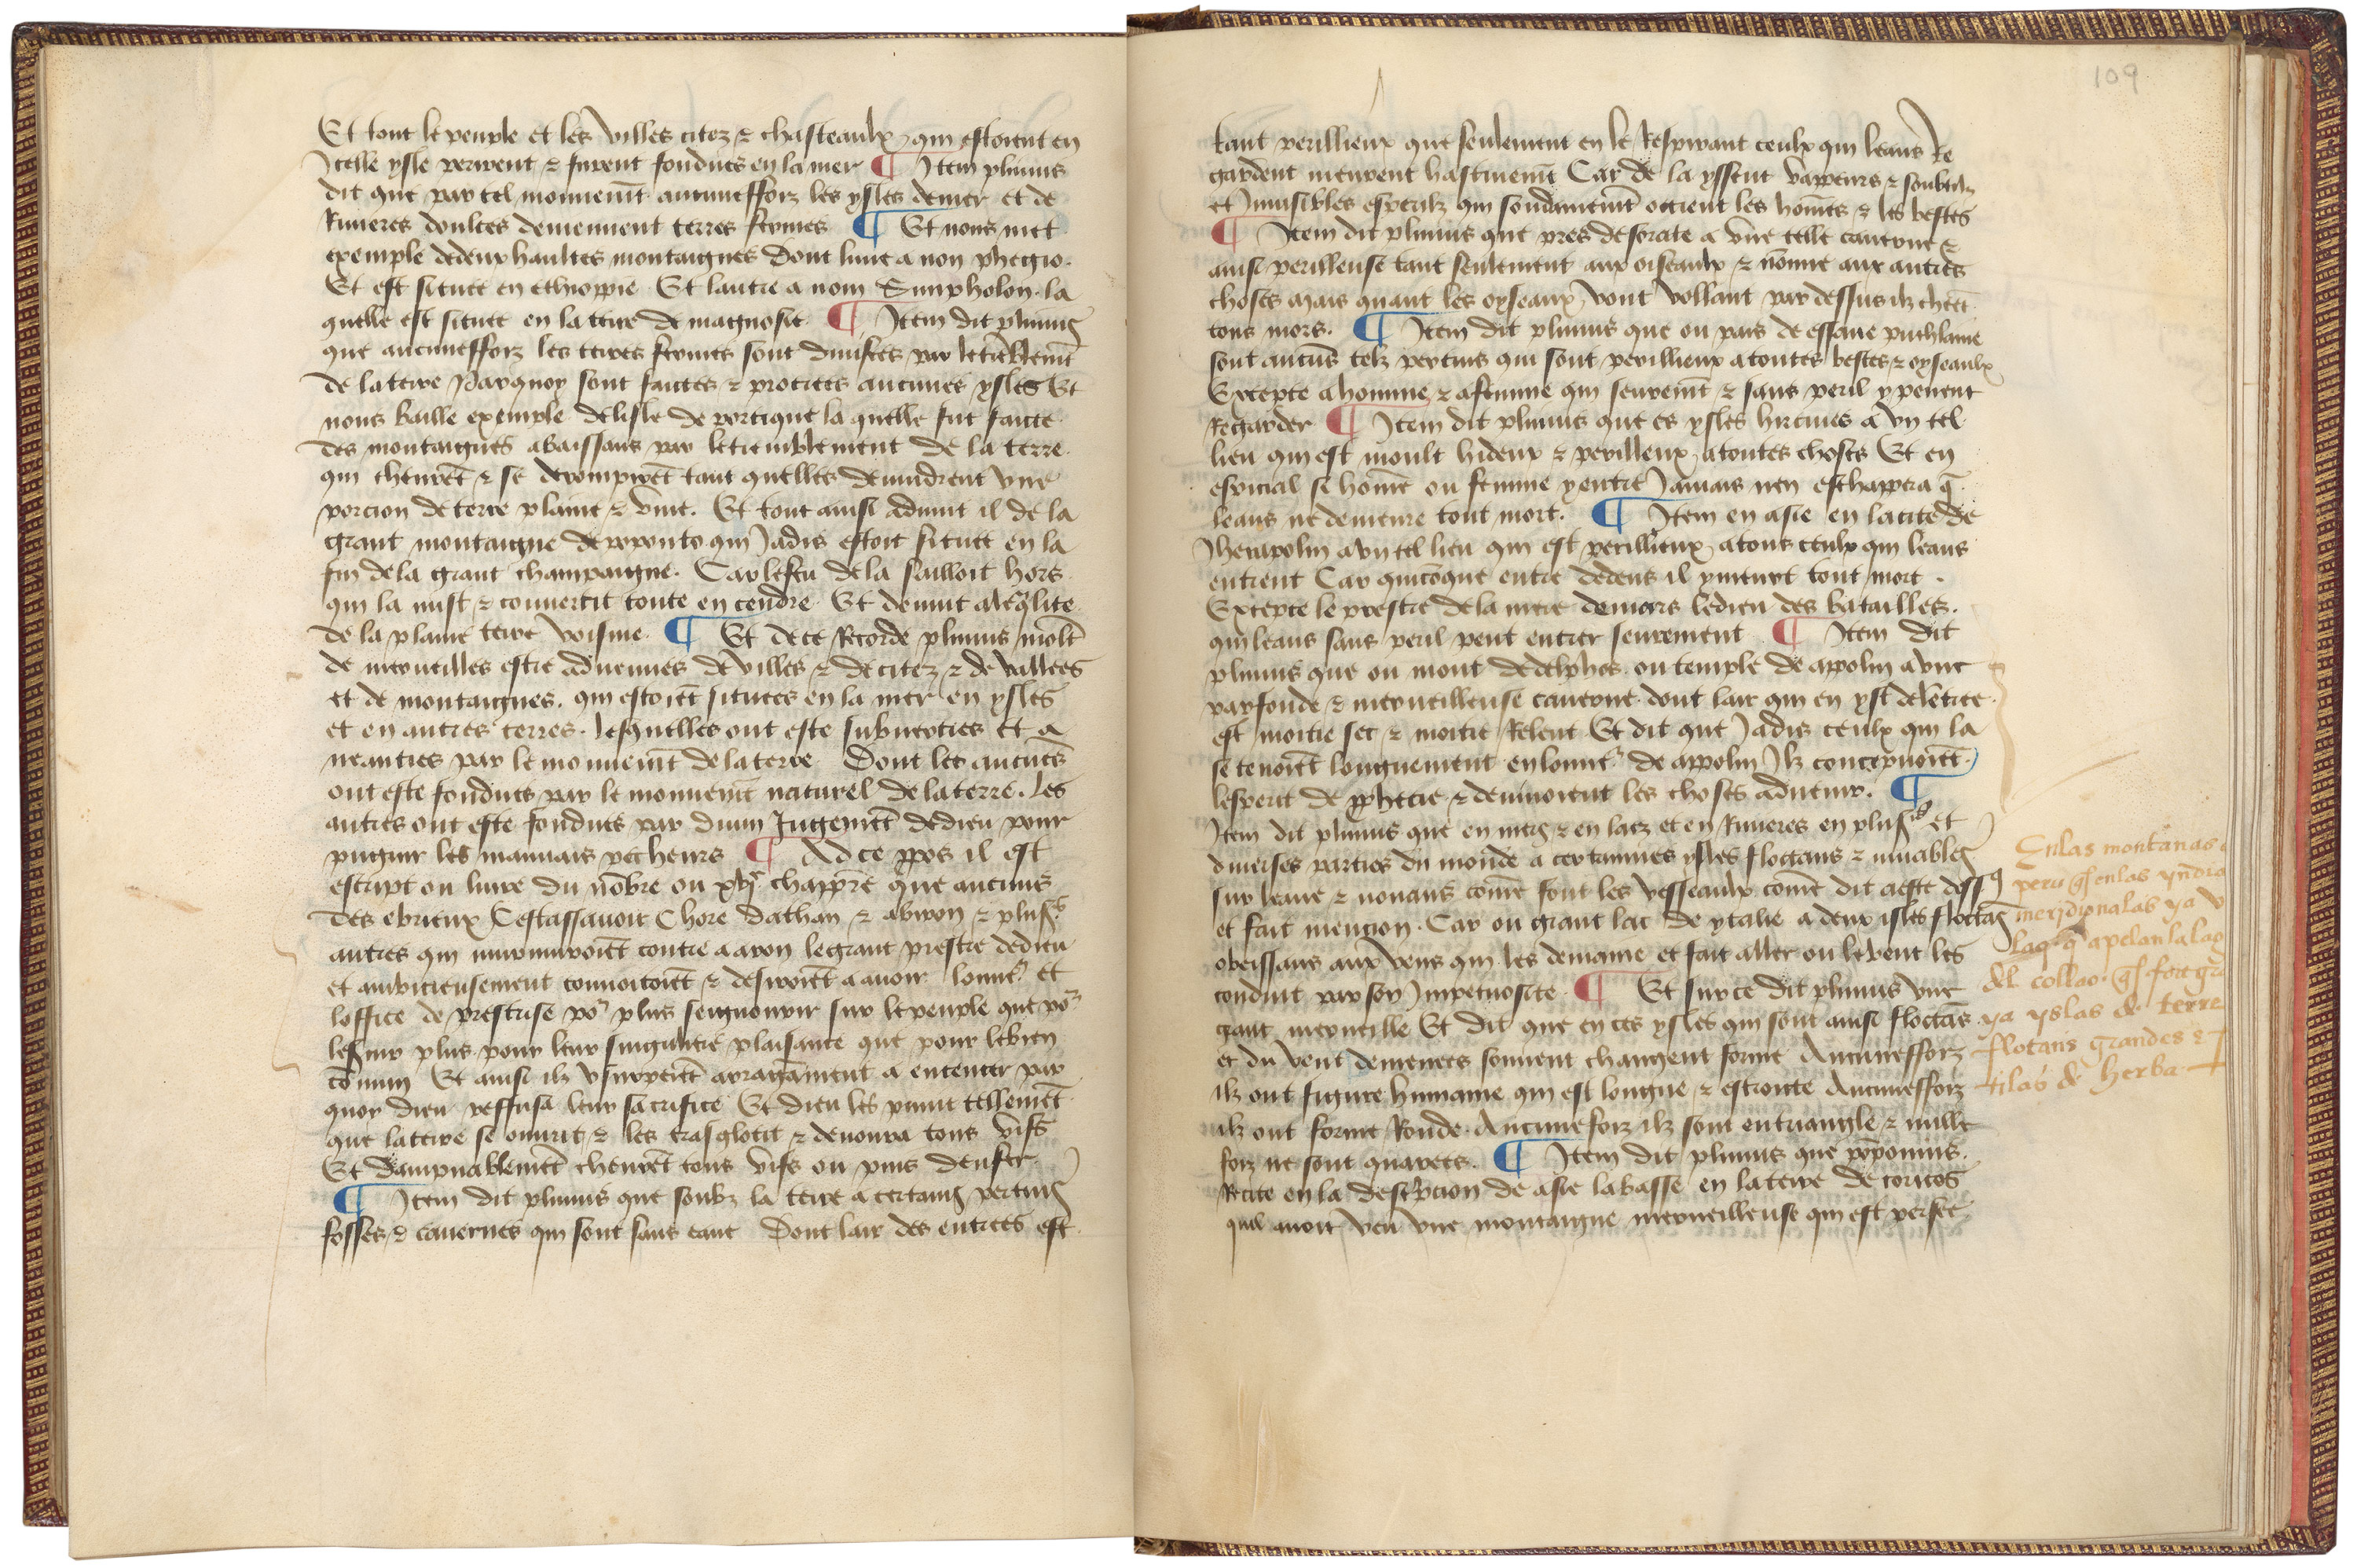 Et tout le peuple et les villes citez ⁊ chasteaulx qui estoient en
Icelle ysle perirent ⁊ furent fondues en la mer ¶ Item plinius
dit que par tel mouuemēt aucuneffoiz les ysles de mer et de
Riuieres doulces deuiennent terres fermes ¶ Et nous met
exemple de deux haultes montaignes dont lune a non phegio.
Et est situee en ethioppie Et lautre a nom Simpholon. la
quelle est situee en la terre de magnosie ¶ Item dit plinius
que aucuneffoiz les terres fermes sont diuisees par le trēblemēt
de la terre Parquoy sont faictes ⁊ procrees aucunes ysles Et
nous baille exemple de lisle de portique la quelle fut faicte
des montaignes abaissans par le tremblement de la terre
qui cheurēt ⁊ se derompirēt tant quelles deuindrent vne
porcion de terre plaine ⁊ vnie. Et tout ainsi aduint il de la
grant montaigne de poponto qui Iadis estoit situee en la
fin de la grant champaigne. Car le feu de la sailloit hors
qui la mist ⁊ conuertit toute en cendre Et deuint a leqlite
de la plaine terre voisine. ¶ Et de ce Recorde plinius molt
de merueilles estre aduenues de villes ⁊ de citez ⁊ de vallees
et de montaignes. qui estoiēt situees en la mer en ysles
et en autres terres. lesquelles ont este subuerties et a
neanties par le mouuemēt de la terre Dont les aucūes
ont este fondues par le mouuemēt naturel de la terre. les
autres ont este fondues par diuin Iugemēt de dieu pour
pugnir les mauuais pecheurs ¶ Ad ce ppos il est
escript ou liure du nōbre ou xvjᵉ chappr̄e que aucuns
des ebrieux Cestassauoir Chore dathan ⁊ abiron ⁊ plusʳˢ
autres qui murmuroiēt contre aaron le grant prestre de dieu
et ambicieusement conuoitoiēt ⁊ desiroiēt a auoir lonnʳ et
loffice de prestrise poʳ plus seignourir sur le peuple que poʳ
lesſuir plus pour leur singuliere plaisance que pour le bien
cōmun Et ainsi ilz vsurperēt arragāment a encenser par
quoy dieu reffusa leur sacrifice Et dieu les punit tellemēt
que la terre se ouurit ⁊ les trasglotit ⁊ deuoura tous vifs
Et dampnablemēt cheurēt tous vifs ou puis denfer
¶ Item dit plinius que soubz la terre a certains pertuis
fosses ⁊ cauernes qui sont sans eaue Dont lair des entrees est
109
tant perillieux que seulement en le Respirant ceulx qui leans Re
gardent meurent hastiuemēt Car de la yssent vappeurs ⁊ soubtilz
et Inuisibles esperilz qui soudainemēt occient les hōmes ⁊ les bestes
¶ Item dit plinius que pres de soracte a vne telle cauerne ⁊
ainsi perilleuse tant seulement aux oiseaulx ⁊ nōmie aux autres
choses Mais quant les oyseaux vont vollant par dessus ilz cheēt
tous mors. ¶ Item dit plinius que ou pais de essaue puthlame
sont aucūs telz pertuis qui sont perillieux a toutes bestes ⁊ oyseaulx
Excepte a homme ⁊ a femme qui seuremēt ⁊ sans peril y peuent
Regarder ¶ Item dit plinius que es ysles hircines a vn tel
lieu qui est moult hideux ⁊ perilleux a toutes choses Et en
especial se hōme ou femme y entre Iamais nen eschappera q̄
leans ne demeure tout mort. ¶ Item en asie en la cite de
Iherapolin a vn tel lieu qui est perillieux a tous ceulx qui leans
entrent Car quicōque entre dedens il y meurt tout mort.
Excepte le prestre de la mere de mars le dieu des batailles.
qui leans sans peril peut entrer seurement ¶ Item dit
plinius que ou mont de delphos. ou temple de appolin a vne
parfonde ⁊ merueilleuse cauerne. dont lair qui en yst de lētree
est moitie sec ⁊ moitie Relent Et dit que Iadis ceulx qui la
se tenoiēt longuement en lonnʳ de appolin Ilz concepuoiēt
lesperit de pphecie ⁊ deuinoient les choses aduenir. ¶
Item dit plinius que en mers ⁊ en lacz et en Riuieres en plusʳˢ et
diuerses parties du monde a certaines ysles floctans ⁊ muables
sur leaue ⁊ nouans cōme font les vesseaulx. cōme dit a este dessꝰ
et fait mencion. Car ou grant lac de ytalie a deux isles floctās
obeissans aux vens qui les demaine et fait aller ou le vent les
conduit par son Impetuosite ¶ Et sur ce dit plinius vne
grant merueille Et dit que en ces ysles qui sont ainsi floctās
et du vent demenees souuent changent forme Aucuneffoiz
ilz ont figure humaine qui est longue ⁊ estroicte Aucuneffoiz
ilz ont forme Ronde. Aucunefoiz ilz sont en triangle ⁊ nulle
foiz ne sont quarees. ¶ Item dit plinius que pōponius.
Recite en la descrpcion de asie la basse en la terre de coricos
quil auoit veu vne montaigne merueilleuse qui est persee
En las montañas
peru q̄ es en las yndia
meridionalas ya v
lago q̄ apelan la lag
del collao. q̄
ya yslas de terre
flotans grandes ⁊
tilas de herba